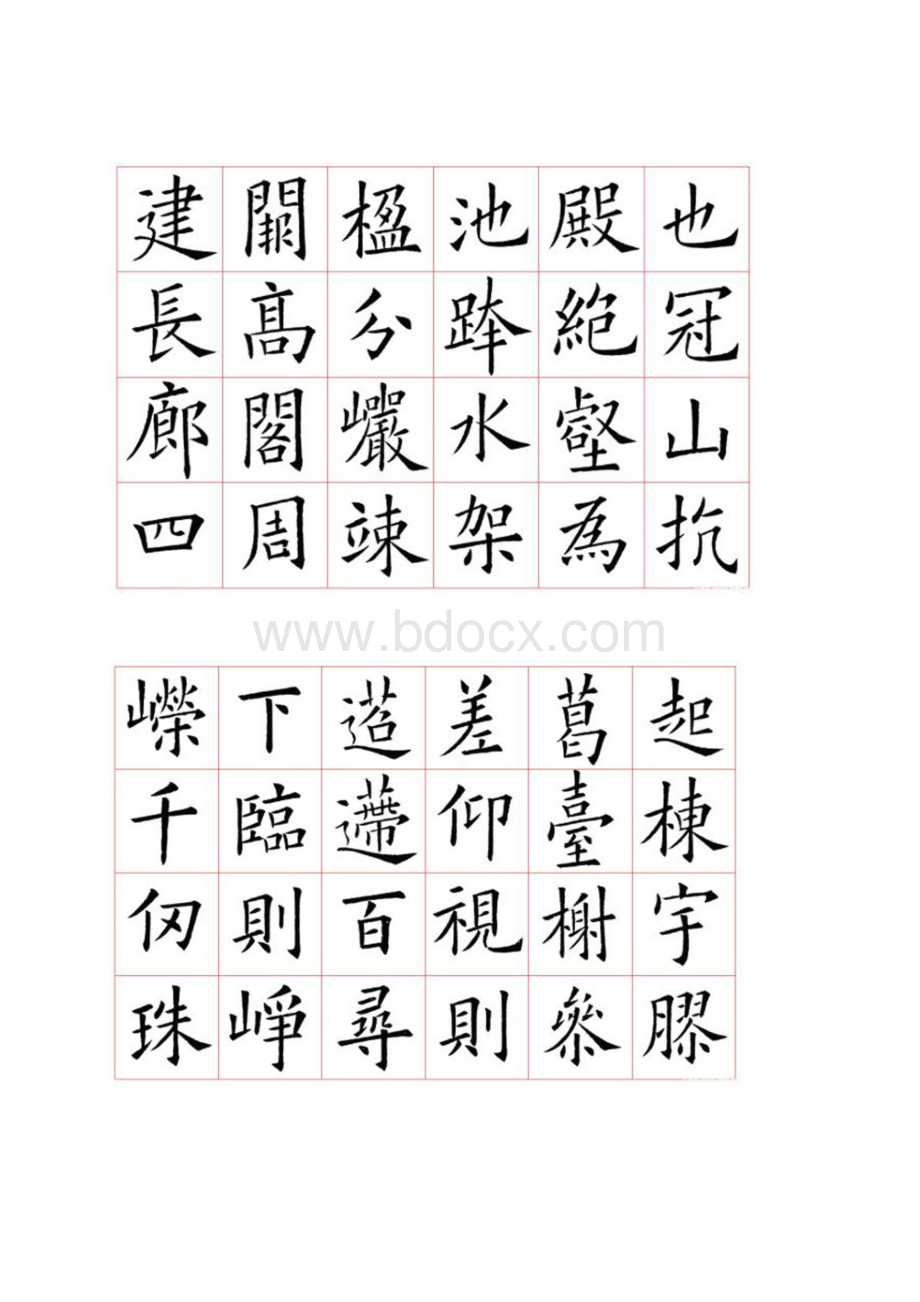 也冠山抗
殿絶壑為
池跨水架
楹分巖竦
闕高閣周
建長廊四
www.bdocx.com
起棟宇膠
葛臺榭參
差仰視則
迢遰百尋
下臨則崢
嶸千仞珠